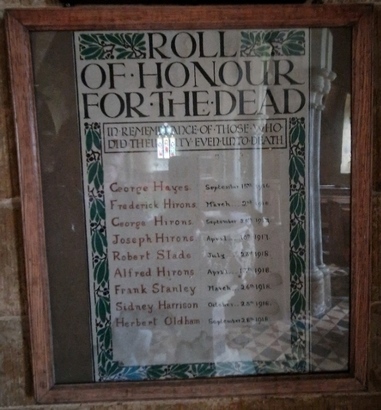 ROLL
OF·HONOUR
FOR·THE·DEAD
IN·REMEMBRANCE·OF·THOSE·WHO·
DID·THEIR·DUTY·EVEN·UNTO·DEATH
George Hayes. September
Frederick Hirons. March
George Hirons. September
Joseph Hirons. April 1917.
Robert Slade. July 1918
Alfred Hirons. April 1918
Frank Stanley. March
Sidney Harrison October
Herbert Oldham September